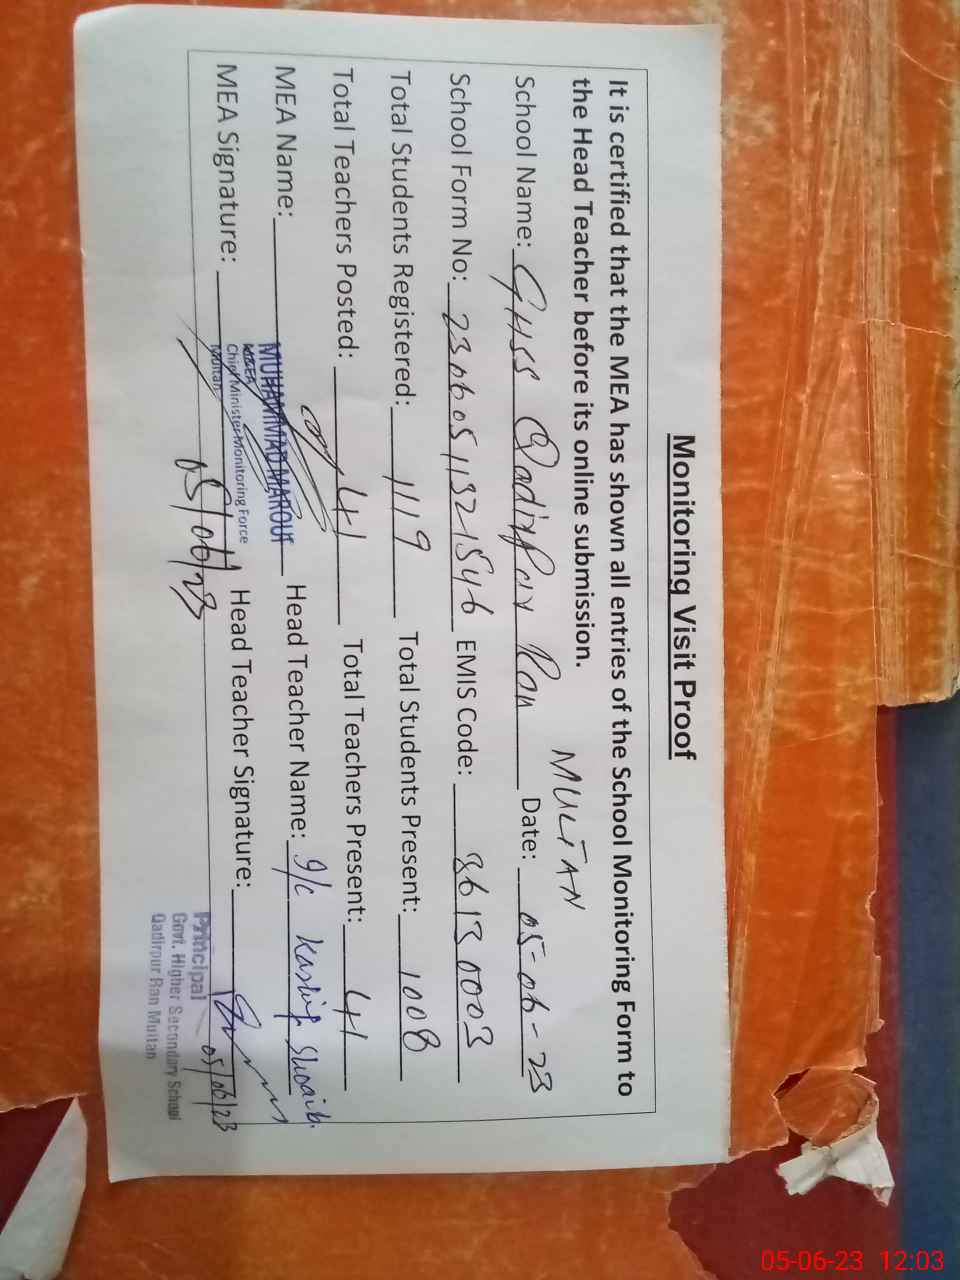 Monitoring Visit Proof
It is certified that the MEA has shown all entries of the School Monitoring Form to
the Head Teacher before its online submission.
MULTAN
School Name: GHSS Qadirpur Ran Date: 05-06-23
School Form No: 23060511321546 EMIS Code: 36130003
Total Students Registered: 1119 Total Students Present: 1008
Total Teachers Posted: 41 Total Teachers Present: 41
MEA Name: MUHAMMAD MAROUF Head Teacher Name: I/c Kashif Shoaib.
MEA
Chief Minister Monitoring Force
Multan
MEA Signature: 05/06/23 Head Teacher Signature: 05/06/23
Principal
Govt. Higher Secondary School
Qadirpur Ran Multan
05-06-23 12:03